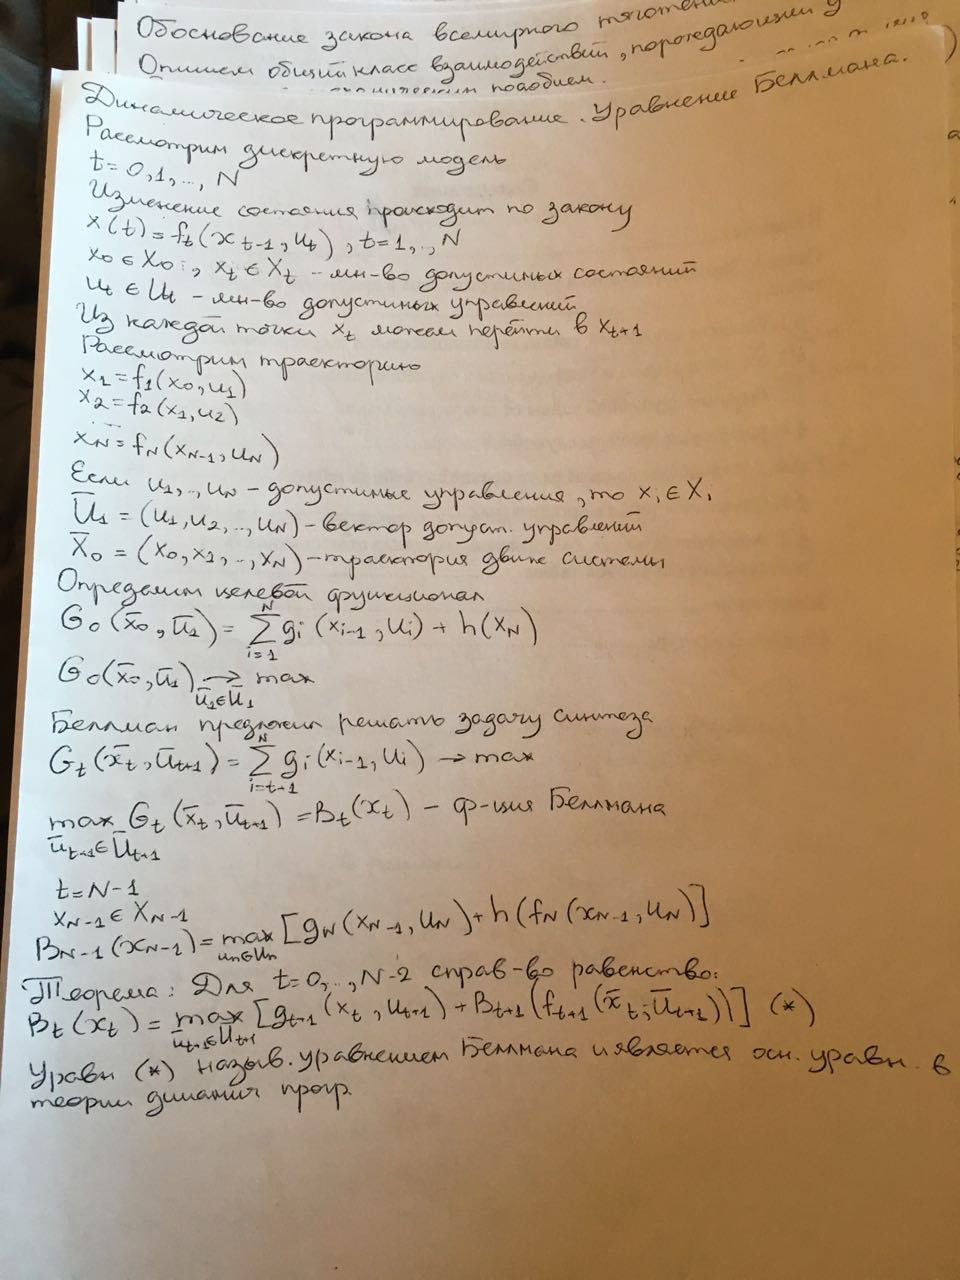 Обоснование закона всемирного тяготени
Опишем общий класс взаимодействий, порождающий у
подобием.
Динамическое программирование. Уравнение Беллмана.
Рассмотрим дискретную модель
t = 0,1,..., N
Изменение состояния происходит по закону
x(t) = f_t(x_{t-1}, u_t), t=1,.., N
x_0 ∈ X_0; x_t ∈ X_t - мн-во допустимых состояний
u_t ∈ U_t - мн-во допустимых управлений
Из каждой точки x_t можем перейти в x_{t+1}
Рассмотрим траекторию
x_1 = f_1(x_0, u_1)
x_2 = f_2(x_1, u_2)
...
x_N = f_N(x_{N-1}, u_N)
Если u_1,.., u_N - допустимые управления, то x_i ∈ X_i
Ū_1 = (u_1, u_2, .., u_N) - вектор допуст. управлений
X̄_0 = (x_0, x_1, .., x_N) - траектория движ системы
Определим целевой функционал
G_0(x̄_0, ū_1) = ∑_{i=1}^{N} g_i(x_{i-1}, u_i) + h(x_N)
G_0(x̄_0, ū_1) → max
ū_1 ∈ Ū_1
Беллман предложил решать задачу синтеза
G_t(x̄_t, ū_{t+1}) = ∑_{i=t+1}^{N} g_i(x_{i-1}, u_i) → max
max G_t(x̄_t, ū_{t+1}) = B_t(x_t) - ф-ция Беллмана
ū_{t+1} ∈ Ū_{t+1}
t = N-1
x_{N-1} ∈ X_{N-1}
B_{N-1}(x_{N-1}) = max [g_N(x_{N-1}, u_N) + h(f_N(x_{N-1}, u_N)]
u_n ∈ U_n
Теорема: Для t=0,.., N-2 справ-во равенство:
B_t(x_t) = max [g_{t+1}(x_t, u_{t+1}) + B_{t+1}(f_{t+1}(x̄_t; ū_{t+1}))] (*)
ū_{t+1} ∈ Ū_{t+1}
Уравн (*) назыв. уравнением Беллмана и является осн. уравн. в
теории динамич прогр.